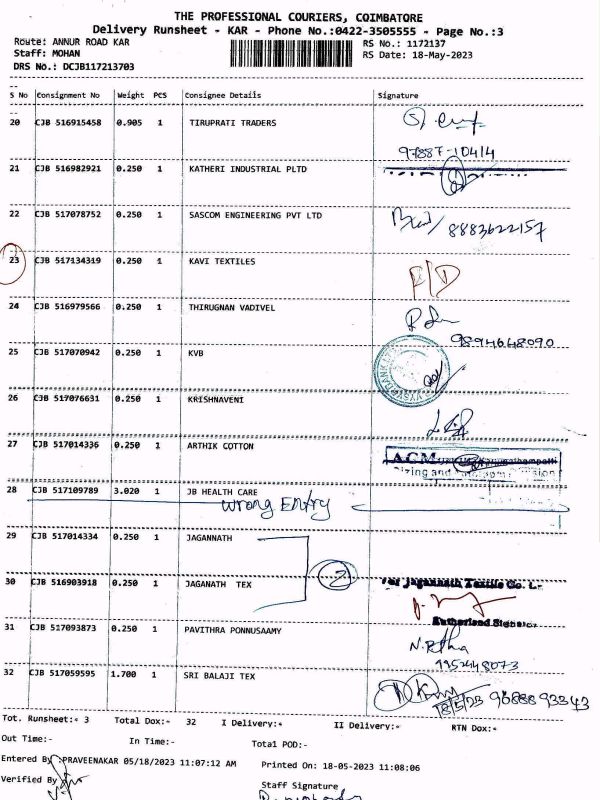 THE PROFESSIONAL COURIERS, COIMBATORE
Delivery Runsheet - KAR - Phone No.:0422-3505555 - Page No.:3
Route: ANNUR ROAD KAR RS No.: 1172137
Staff: MOHAN RS Date: 18-May-2023
DRS No.: DCJB117213703
S No Consignment No Weight PCS Consignee Details Signature
20 CJB 516915458 0.905 1 TIRUPRATI TRADERS
97887-10414
21 CJB 516982921 0.250 1 KATHERI INDUSTRIAL PLTD
22 CJB 517078752 0.250 1 SASCOM ENGINEERING PVT LTD 8883622157
23 CJB 517134319 0.250 1 KAVI TEXTILES F/D
24 CJB 516979566 0.250 1 THIRUGNAN VADIVEL
9894648090
25 CJB 517070942 0.250 1 KVB
26 CJB 517076631 0.250 1 KRISHNAVENI
27 CJB 517014336 0.250 1 ARTHIK COTTON
28 CJB 517109789 3.020 1 JB HEALTH CARE
wrong Entry
29 CJB 517014334 0.250 1 JAGANNATH
2
30 CJB 516903918 0.250 1 JAGANATH TEX For Jagannath Textile Co. L
31 CJB 517093873 0.250 1 PAVITHRA PONNUSAAMY
32 CJB 517059595 1.700 1 SRI BALAJI TEX
18/5/23
Tot. Runsheet:- 3 Total Dox:- 32 I Delivery:- II Delivery:- RTN Dox:-
Out Time:- In Time:- Total POD:-
Entered By :PRAVEENAKAR 05/18/2023 11:07:12 AM Printed On: 18-05-2023 11:08:06
Verified By Staff Signature